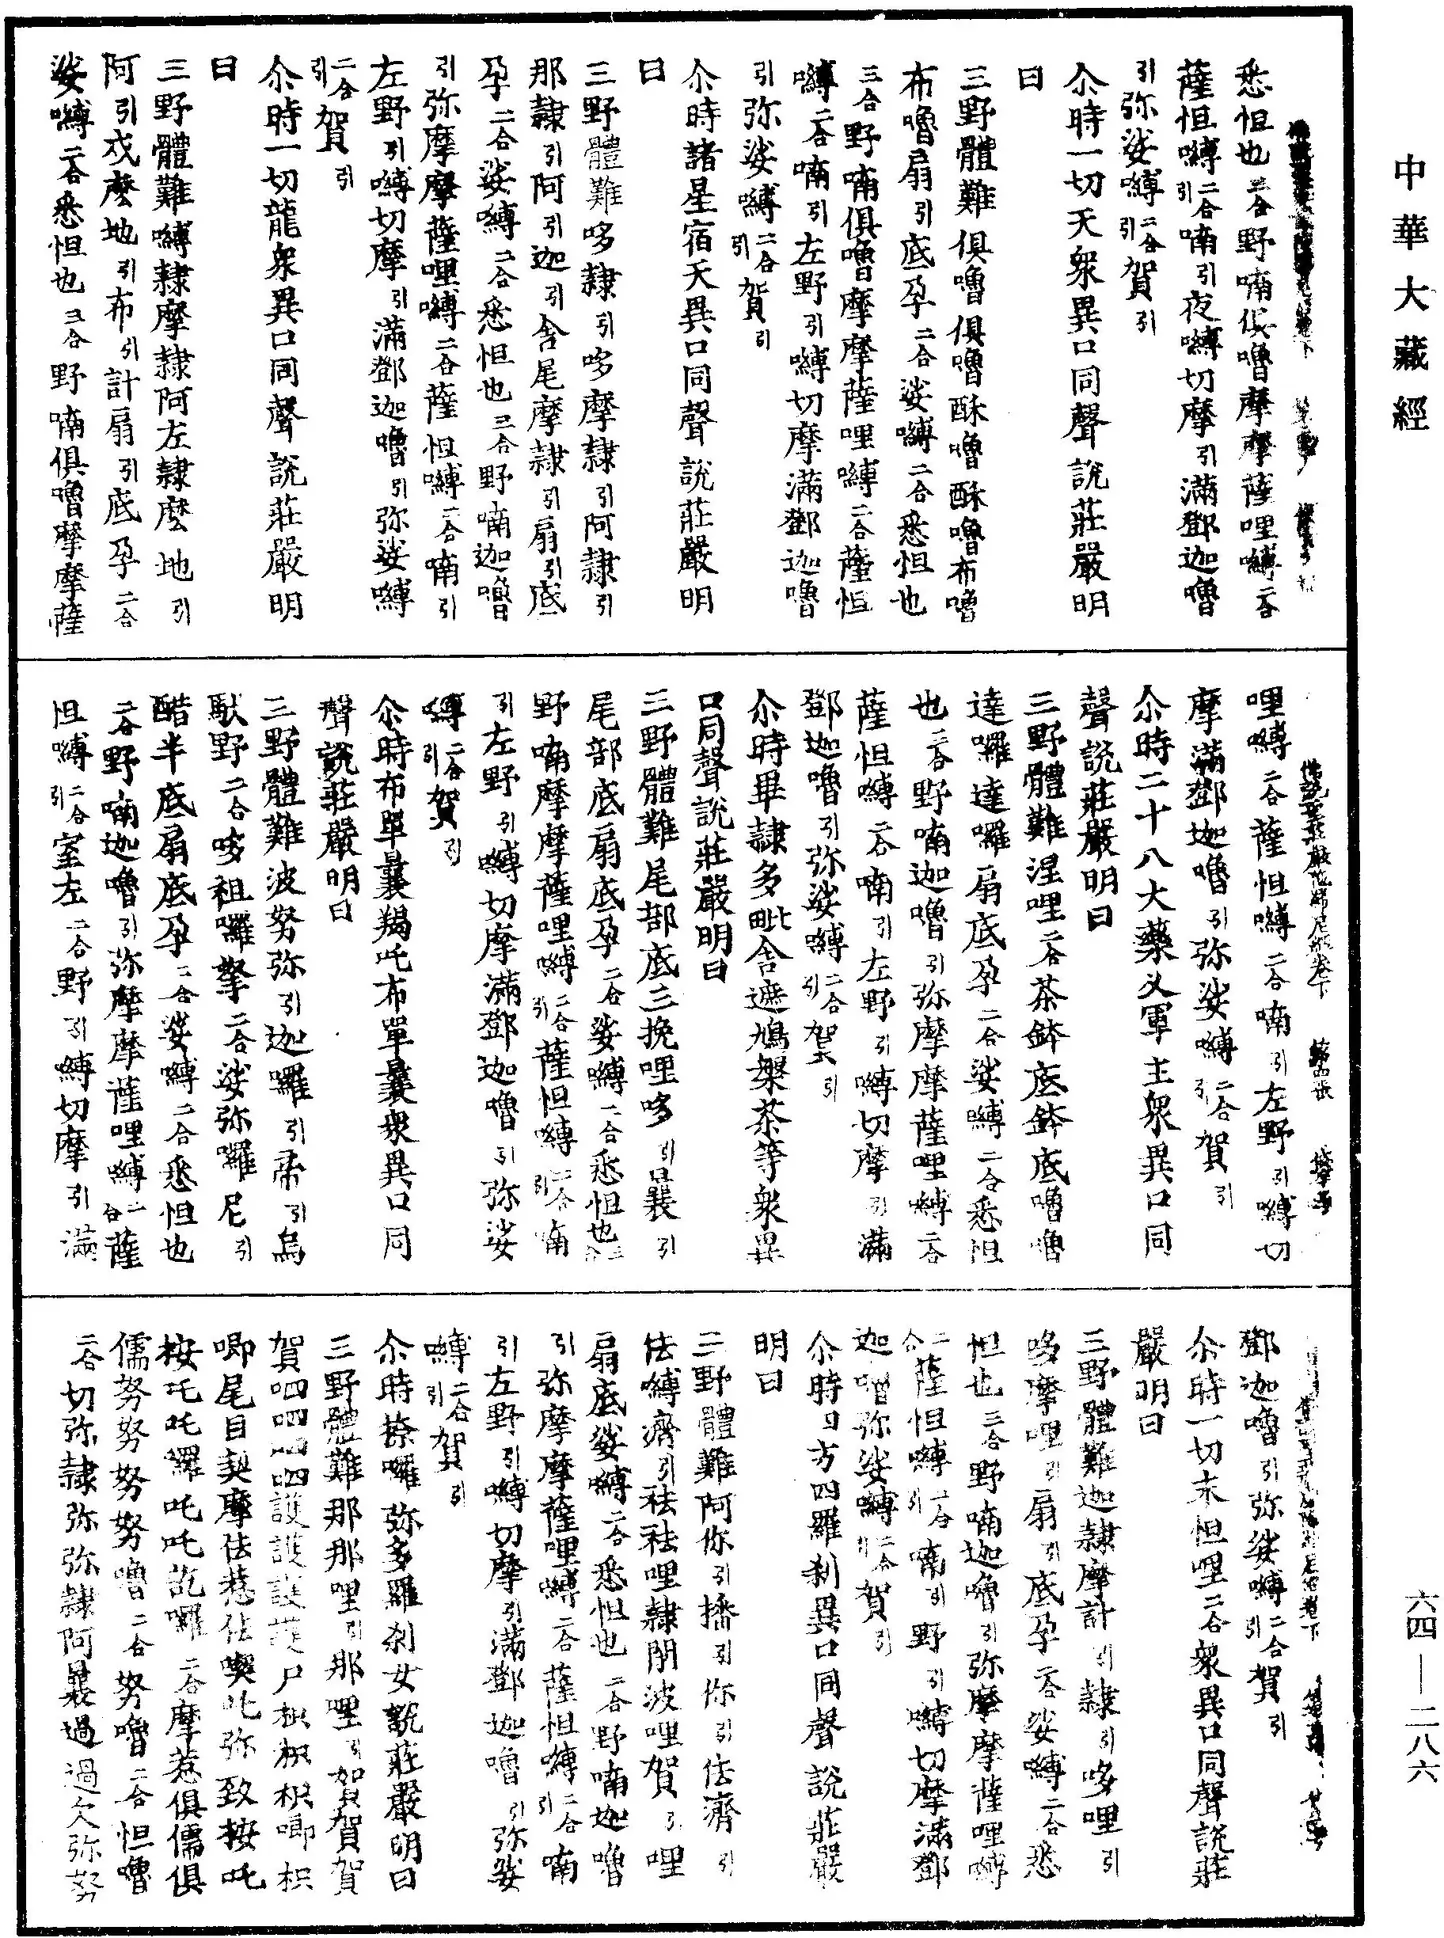 中華大藏經
悉怛也三合野喃俱嚕摩摩薩哩嚩二合
薩怛嚩二合引喃引夜嚩切摩引滿鄧迦嚕
引弥娑嚩二合引賀引
尒時一切天衆異口同聲說莊嚴明
曰
三野體難俱嚕俱嚕酥嚕酥嚕布嚕
布嚕扇引底孕二合娑嚩二合悉怛也
三合野喃俱嚕摩摩薩哩嚩二合薩怛
嚩二合喃引左野引嚩切摩滿鄧迦嚕
引弥娑嚩二合引賀引
尒時諸星宿天異口同聲說莊嚴明
曰
三野體難哆隸引哆摩隸引阿隸引
那隸引阿引迦引含尾摩隸引扇引底
孕二合娑嚩二合悉怛也三合野喃迦嚕
引弥摩摩薩哩嚩二合薩怛嚩二合喃引
左野引嚩切摩引滿鄧迦嚕引弥娑嚩
二合引賀引
尒時一切龍衆異口同聲說莊嚴明
曰
三野體難嚩隸摩隸阿左隸麽地引
阿引戍麽地引布引計扇引底孕二合
娑嚩二合悉怛也三合野喃俱嚕摩摩薩
哩嚩二合薩怛嚩二合喃引左野引嚩切
摩滿鄧迦嚕引弥娑嚩二合引賀引
尒時二十八大藥叉軍主衆異口同
聲說莊嚴明曰
三野體難涅哩二合茶鉢底鉢底嚕嚕
達囉達囉扇底孕二合娑嚩二合悉怛
也三合野喃迦嚕引弥摩摩薩哩嚩二合
薩怛嚩二合喃引左野引嚩切摩引滿
鄧迦嚕引弥娑嚩二合引賀引
尒時畢隸多毗舍遮鳩槃茶等衆異
口同聲說莊嚴明曰
三野體難尾部底三挽哩哆引曩引
尾部底扇底孕二合娑嚩二合悉怛也三合
野喃摩摩薩哩嚩二合引薩怛嚩二合引喃
引左野引嚩切摩滿鄧迦嚕引弥娑
嚩二合引賀引
尒時布單曩羯吒布單曩衆異口同
聲說莊嚴明曰
三野體難波努弥引迦囉引帝引烏
馱野二合哆祖囉拏二合娑弥囉尼引
醋半底扇底孕二合娑嚩二合悉怛也
二合野喃迦嚕引弥摩摩薩哩嚩二合薩
怛嚩二合引室左二合野引嚩切摩引滿
鄧迦嚕引弥娑嚩二合引賀引
尒時一切末怛哩二合衆異口同聲說莊
嚴明曰
三野體難迦隸摩計引隸引哆哩引
哆摩哩引扇引底孕二合娑嚩二合悉
怛也三合野喃迦嚕引弥摩摩薩哩嚩
二合薩怛嚩二合引喃引野引嚩切摩滿鄧
迦嚕弥娑嚩二合引賀引
尒時四方四羅刹異口同聲說莊嚴
明曰
三野體難阿你引播引你引佉濟引
佉嚩濟引祛祛哩隸閉波哩賀引哩
扇底娑嚩二合悉怛也二合野喃迦嚕
引弥摩摩薩哩嚩二合薩怛嚩二合引喃
引左野引嚩切摩引滿鄧迦嚕引弥娑
嚩二合引賀引
尒時捺囉弥多羅刹女說莊嚴明曰
三野體難那那哩引那哩引賀賀賀
賀呬呬呬呬護護護護尸枳枳枳唧枳
唧尾目契摩佉惹佉喫吒弥致按吒
按吒吒囉吒吒訖囉二合摩惹俱儒俱
儒努努努努嚕二合努嚕二合怛嚕
二合切弥隸弥弥隸阿曩過過欠弥努
六四—二八六